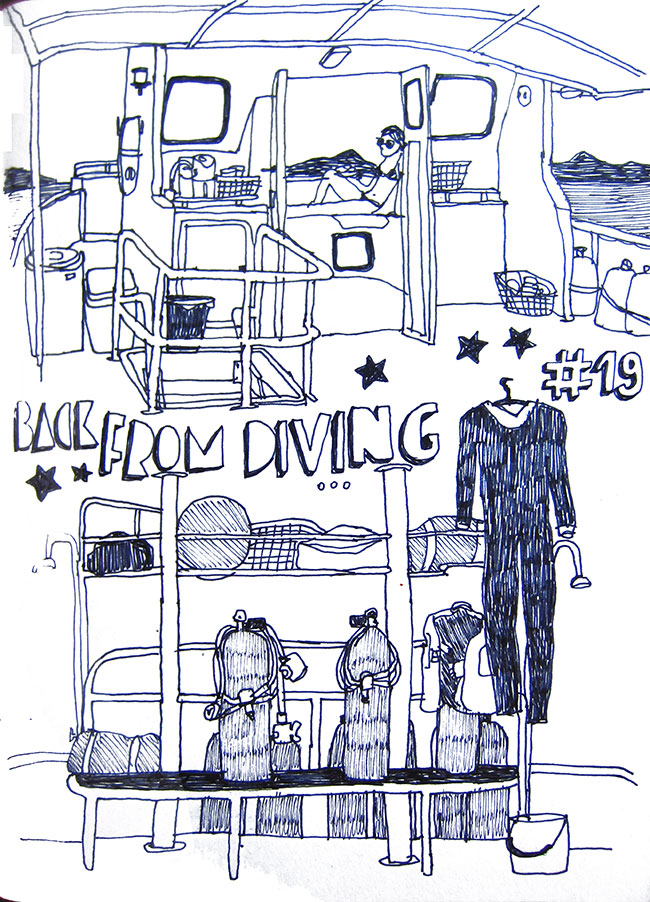 #19
BACK FROM DIVING
...